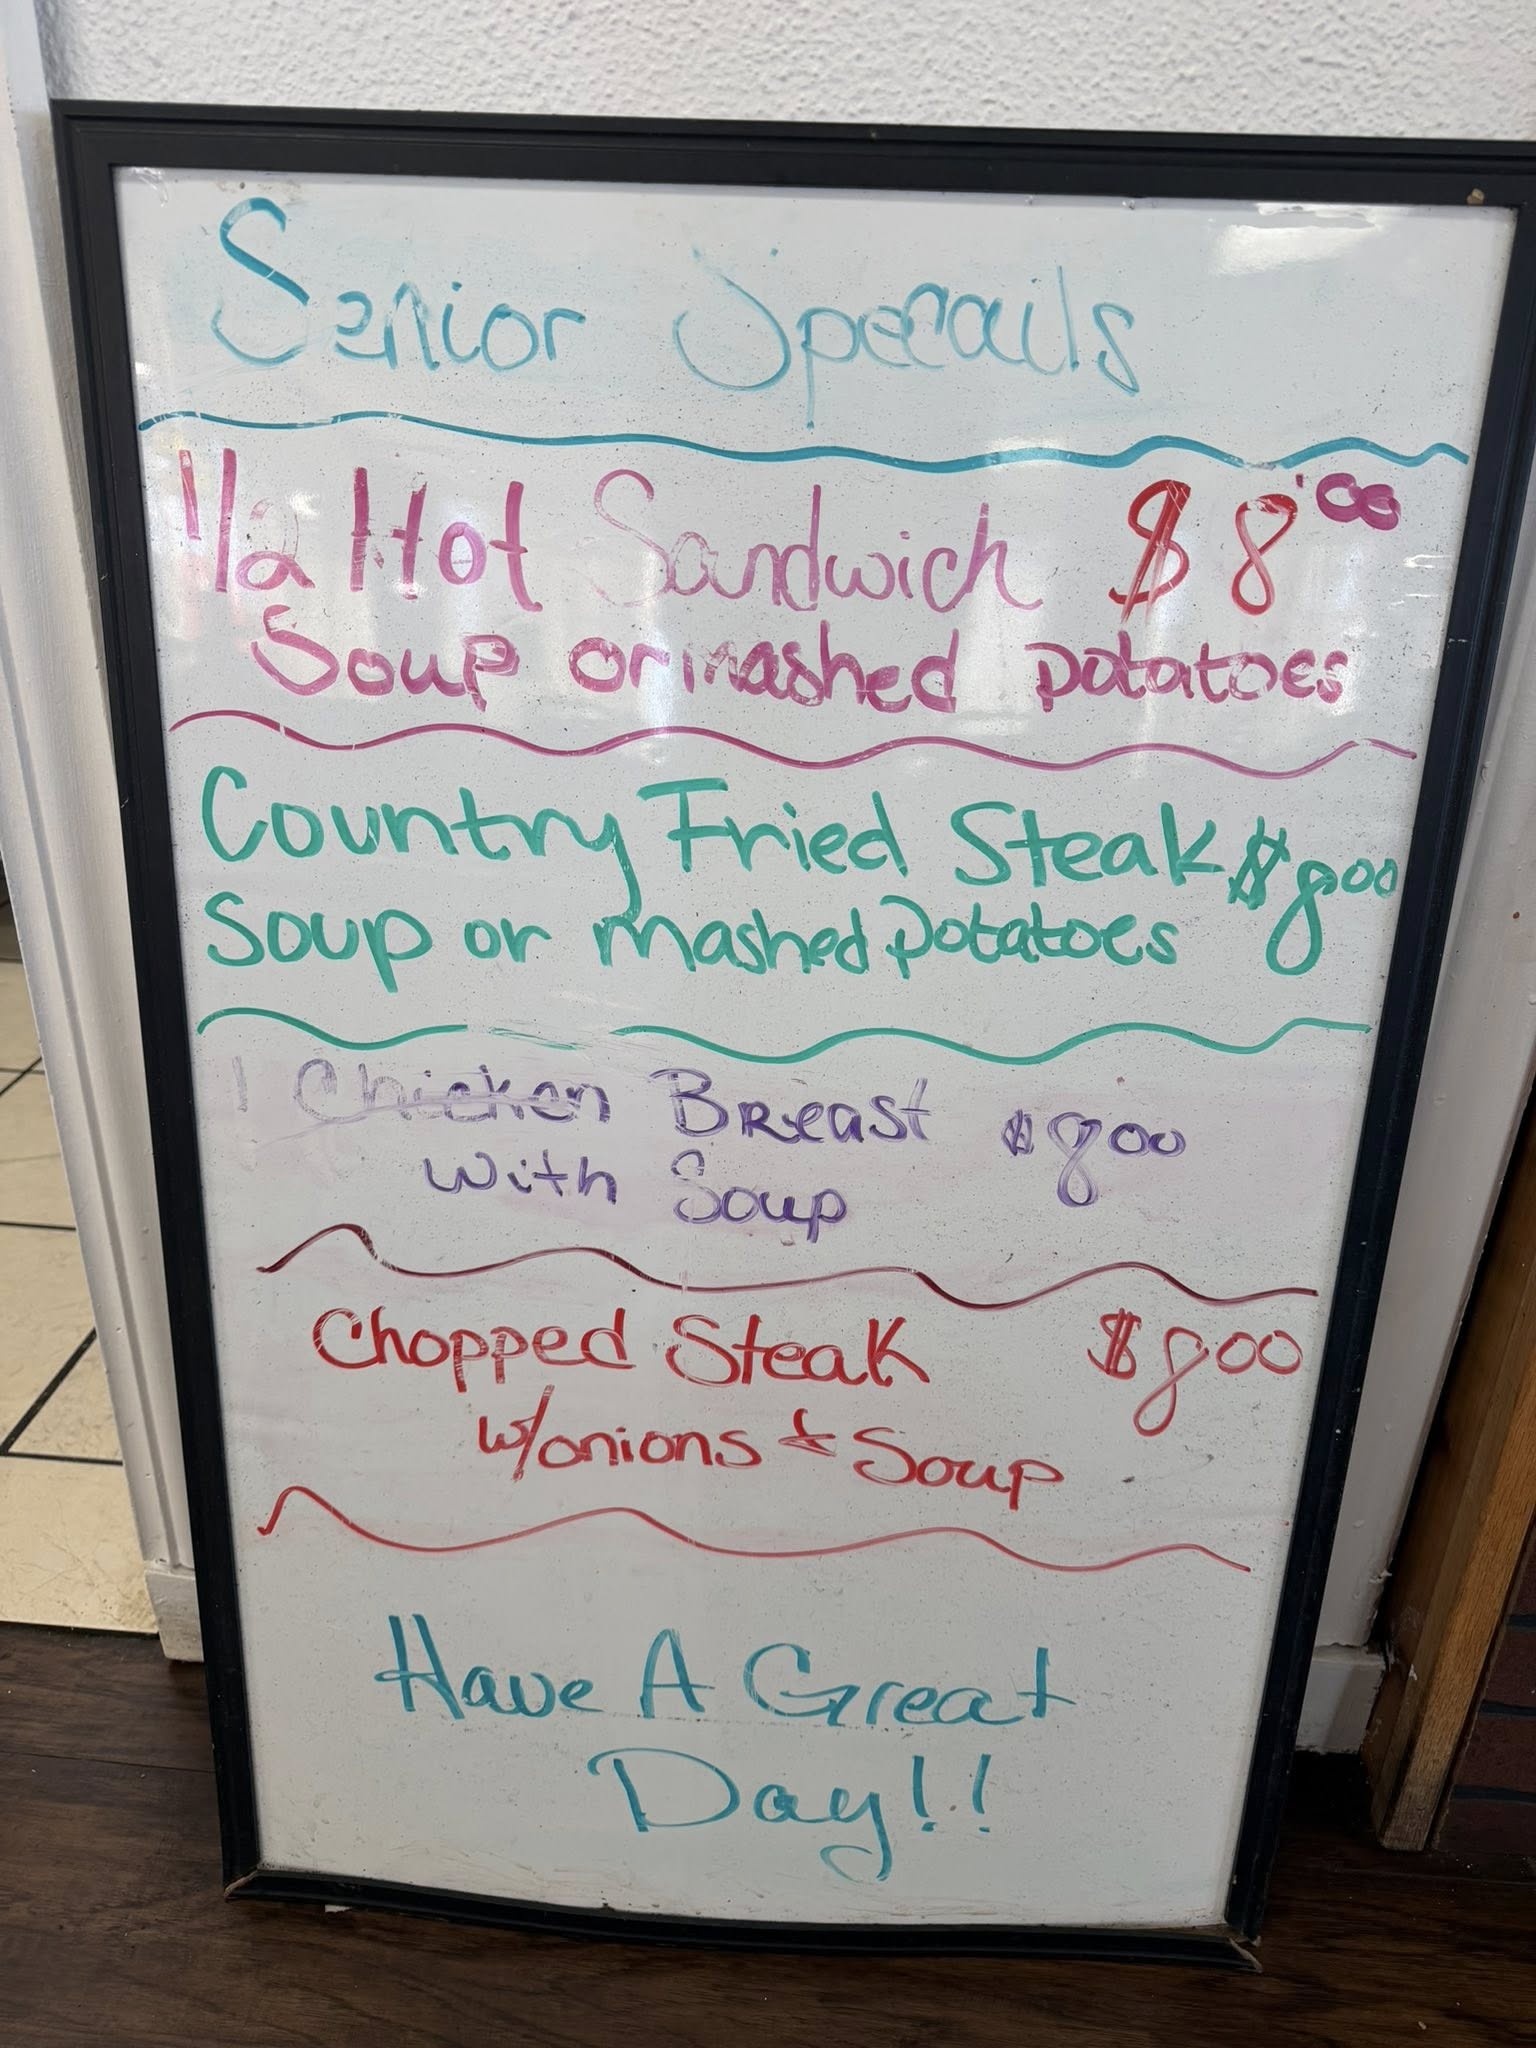 Senior Specails
1/2 Hot Sandwich $8.00
Soup or mashed potatoes
Country Fried Steak $8.00
Soup or mashed potatoes
1 Chicken Breast $8.00
With Soup
Chopped Steak $8.00
w/onions & Soup
Have A Great
Day!!